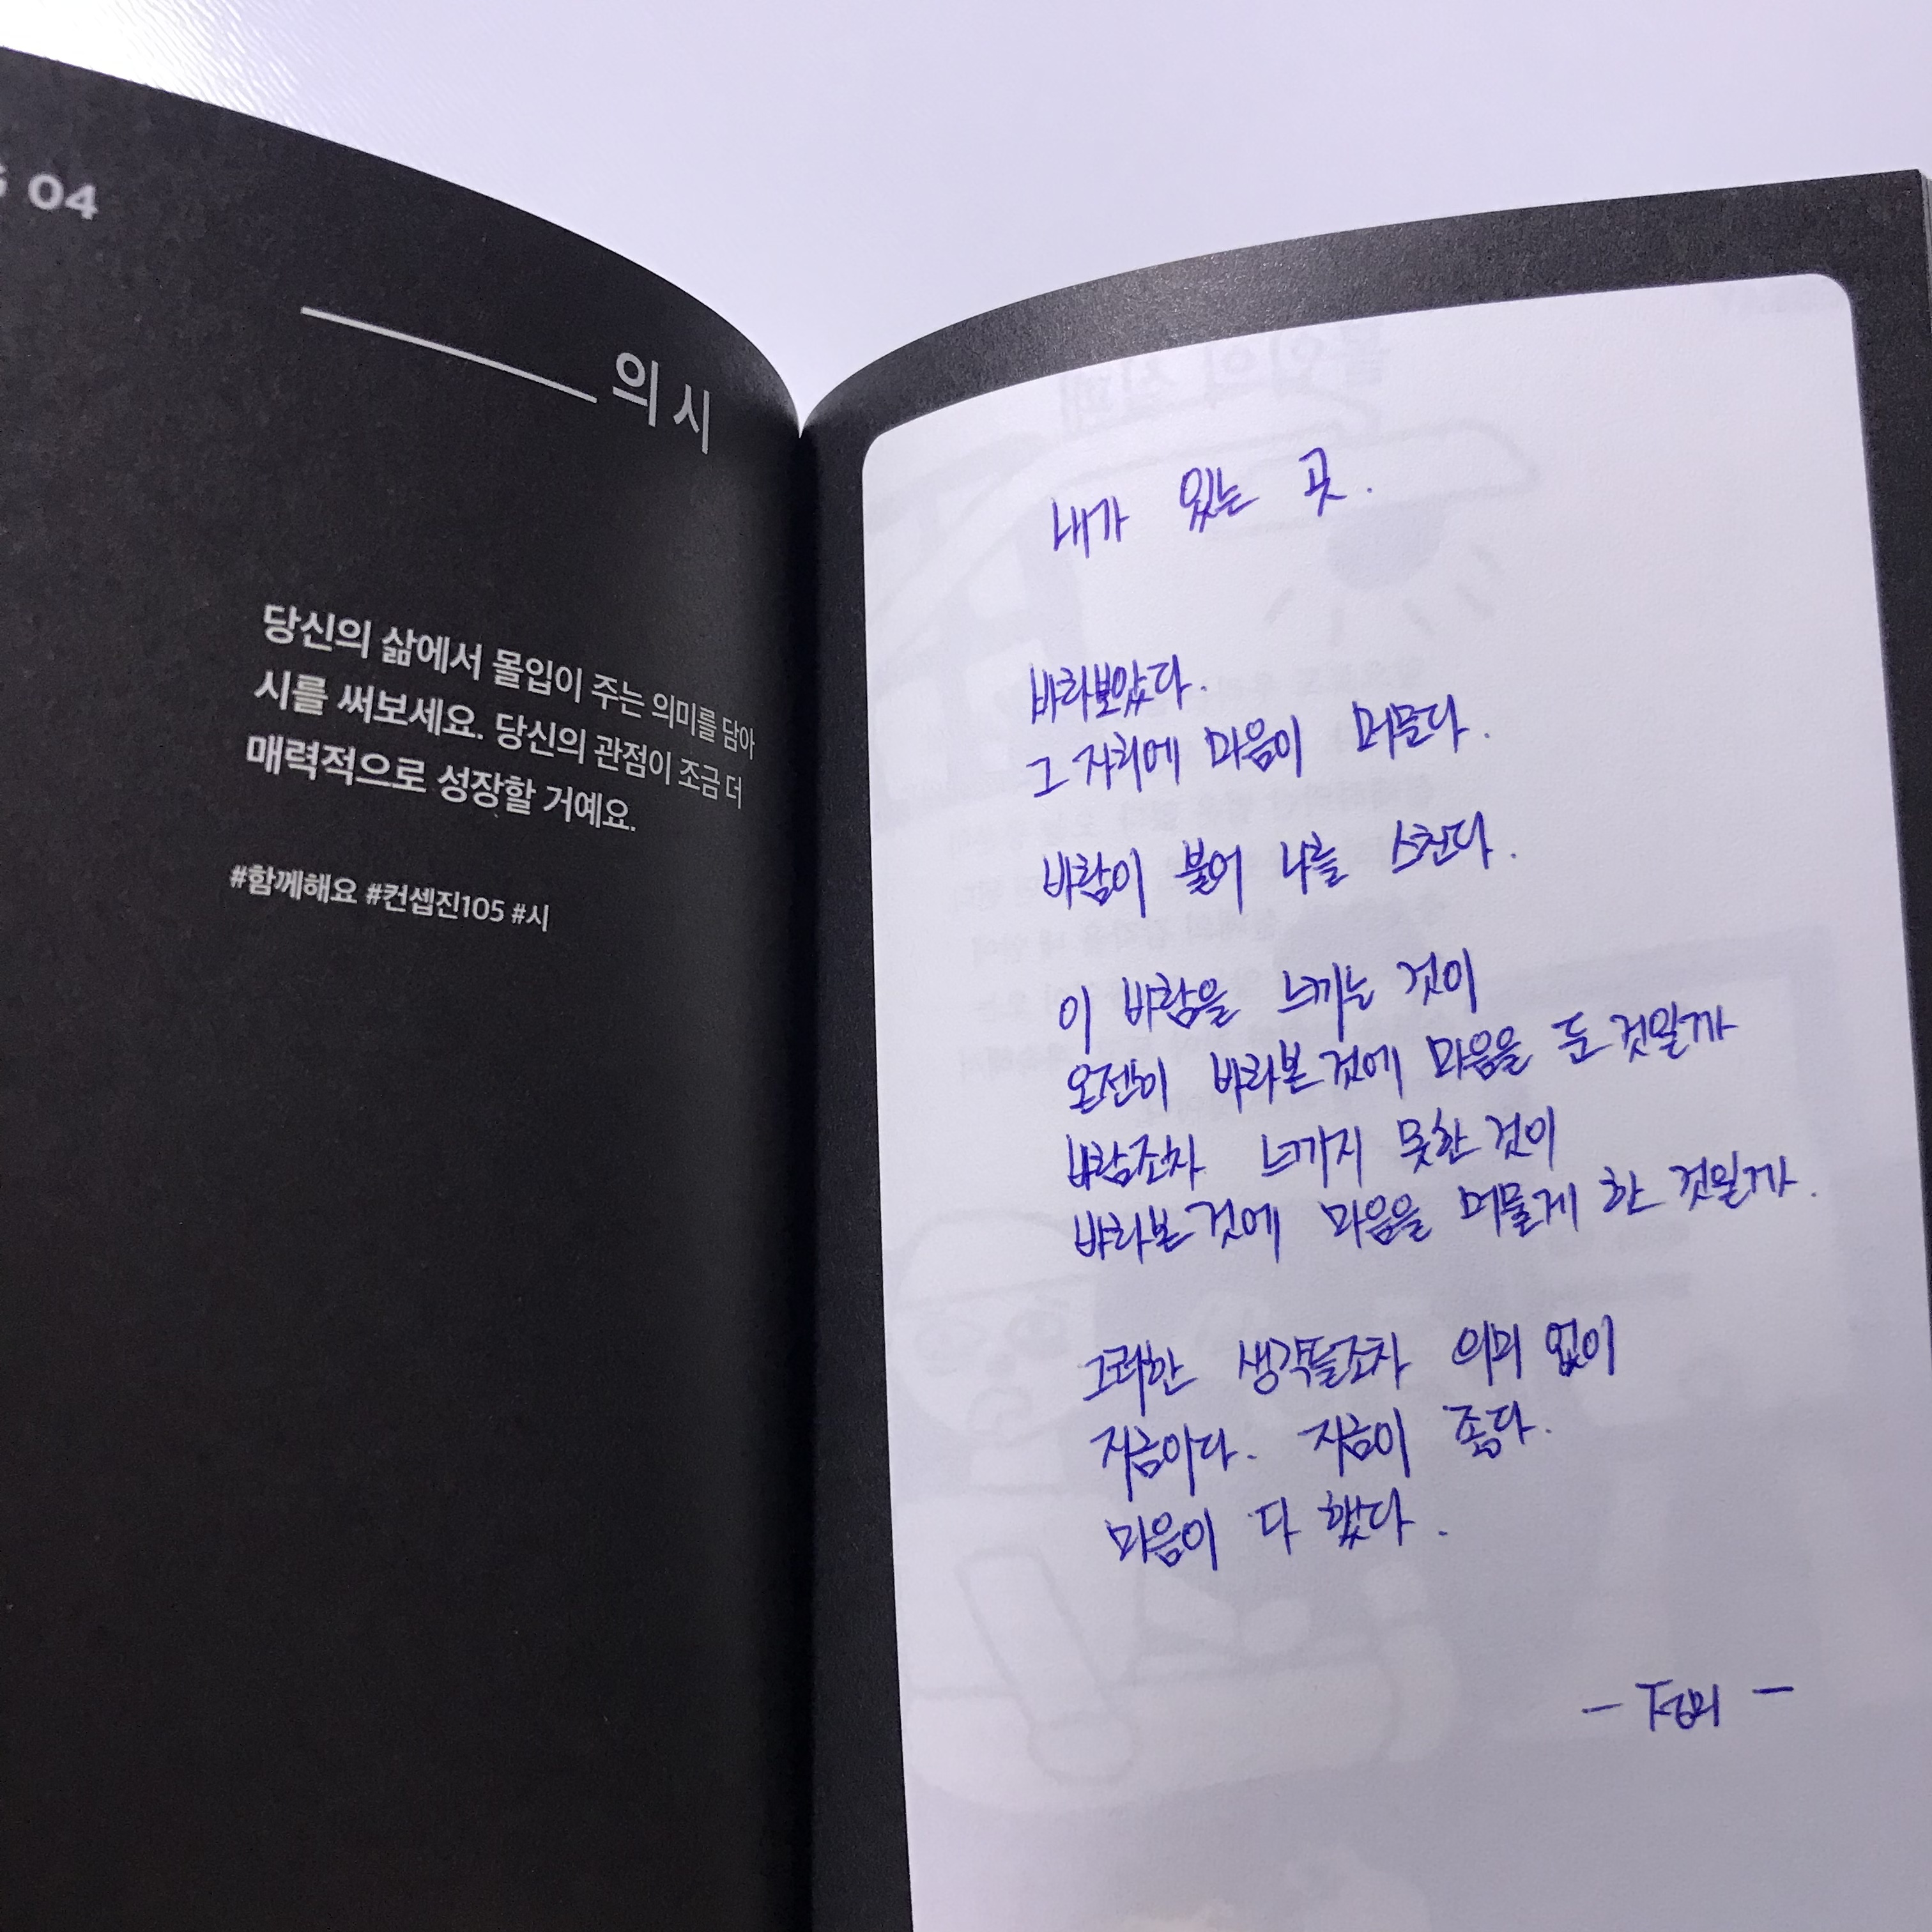 04
의 시
당신의 삶에서 몰입이 주는 의미를 담아
시를 써보세요. 당신의 관점이 조금 더
매력적으로 성장할 거예요.
#함께해요 #컨셉진105 #시
내가 있는 곳.
바라보았다.
그 자리에 마음이 머문다.
바람이 불어 나를 스친다.
이 바람을 느끼는 것이
온전히 바라본 것에 마음을 둔 것일까
바람조차 느끼지 못한 것이
바라본 것에 마음을 머물게 한 것일까.
그러한 생각들조차 의미 없이
지금이다. 지금이 좋다.
마음이 다 했다.